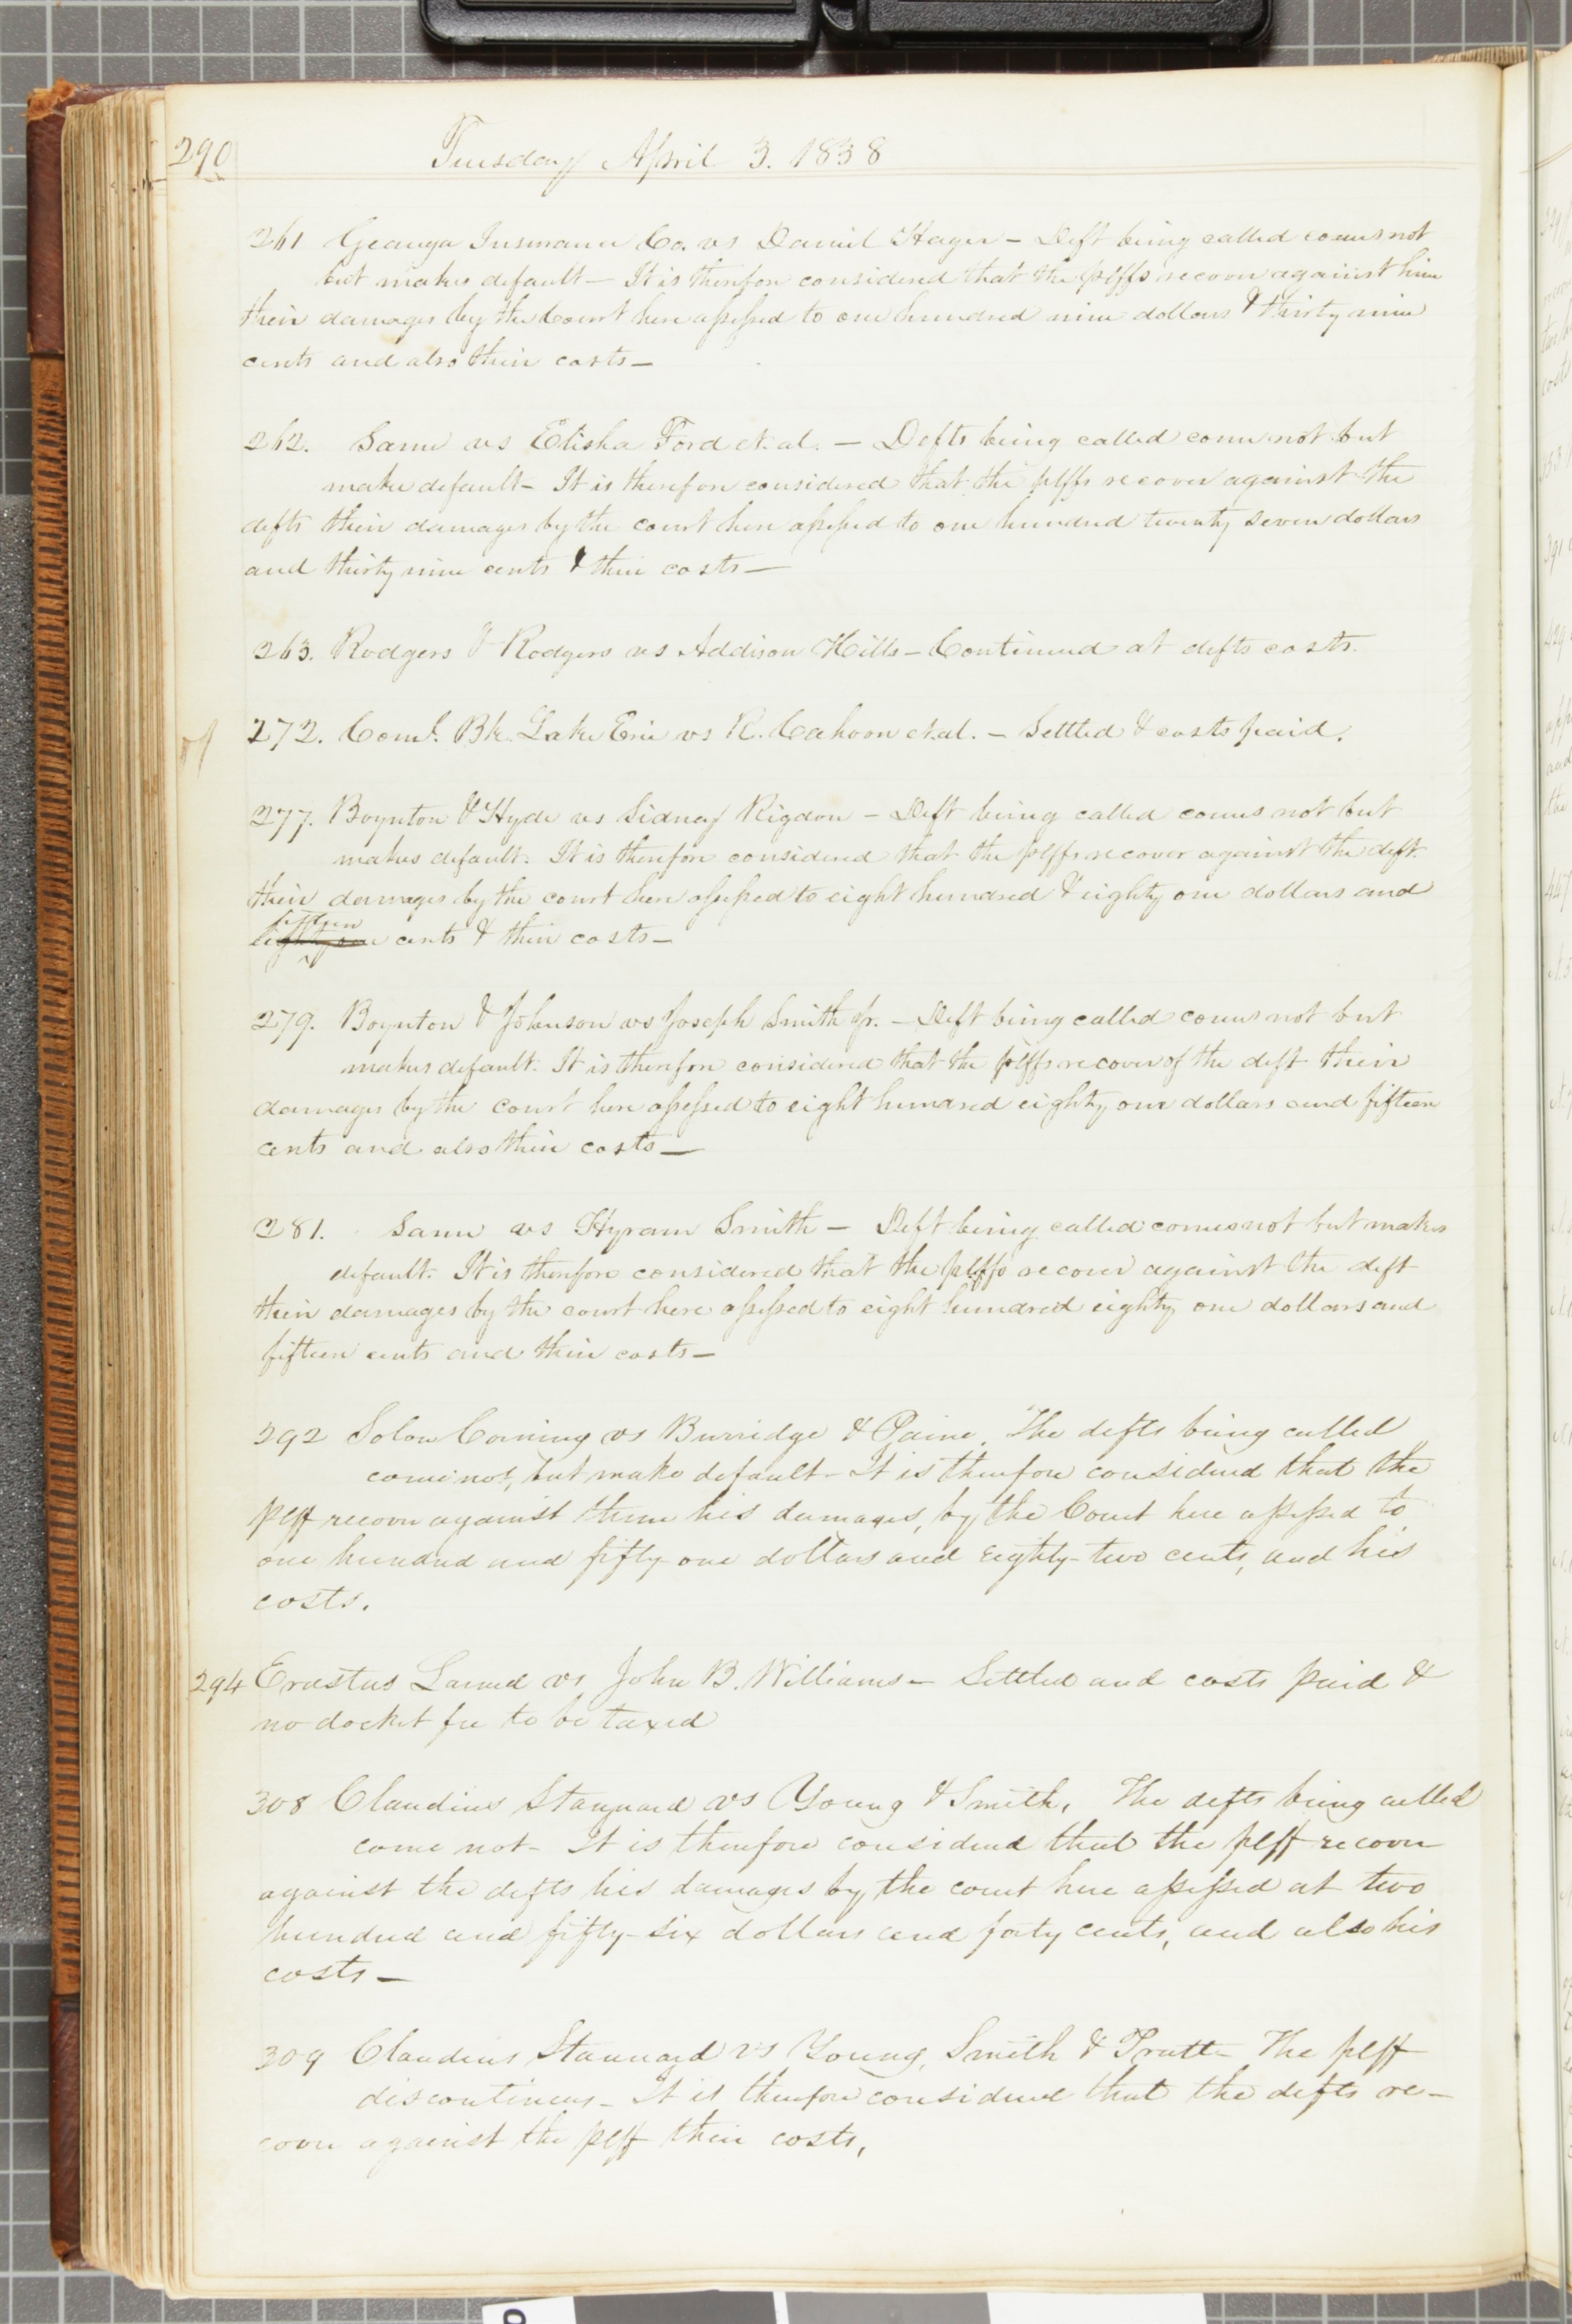 290
Tuesday April 3. 1838
261 Geauga Insurance Co. vs Daniel Hager - Deft being called comes not
but makes default - It is therefore considered that the plffs recover against him
their damages by the Court here assessed to one hundred nine dollars & thirty nine
cents and also their costs -
262. Same vs Elisha Ford et. al. - Defts being called come not but
make default - It is therefore considered that the plffs recover against the
defts their damages by the court here assessed to one hundred twenty seven dollars
and thirty nine cents & their costs -
263. Rodgers & Rodgers vs Addison Hills - Continued at defts costs.
272. Coml. Bk. Lake Erie vs R. Cahoon et.al. - Settled & costs paid.
277. Boynton & Hyde vs Sidney Rigdon - Deft being called comes not but
makes default. It is therefore considered that the plffs recover against the deft.
their damages by the court here assessed to eight hundred & eighty one dollars and
fifteen
eighty one cents & their costs -
279. Boynton & Johnson vs Joseph Smith Jr. - Deft being called comes not but
makes default. It is therefore considered that the plffs recover of the deft their
damages by the court here assessed to eight hundred eighty one dollars and fifteen
cents and also their costs -
281. Same vs Hyram Smith - Deft being called comes not but makes
default. It is therefore considered that the plffs recover against the deft
their damages by the court here assessed to eight hundred eighty one dollars and
fifteen cents and their costs -
292 Solon Corning vs Burridge & Paine. The defts being called
come not, but make default - It is therefore considered that the
plff recover against them his damages, by the Court here assessed to
one hundred and fifty-one dollars and eighty-two cents, and his
costs.
294 Erastus Larned vs John B. Williams - Settled and costs paid &
no docket fee to be taxed
308 Claudius Stannard vs Young & Smith. The defts being called
come not - It is therefore considered that the plff recover
against the defts his damages by the court here assessed at two
hundred and fifty-six dollars and forty cents, and also his
costs -
309 Claudius Stannard vs Young, Smith & Pratt - The plff
discontinues - It is therefore considered that the defts re-
cover against the plff their costs,